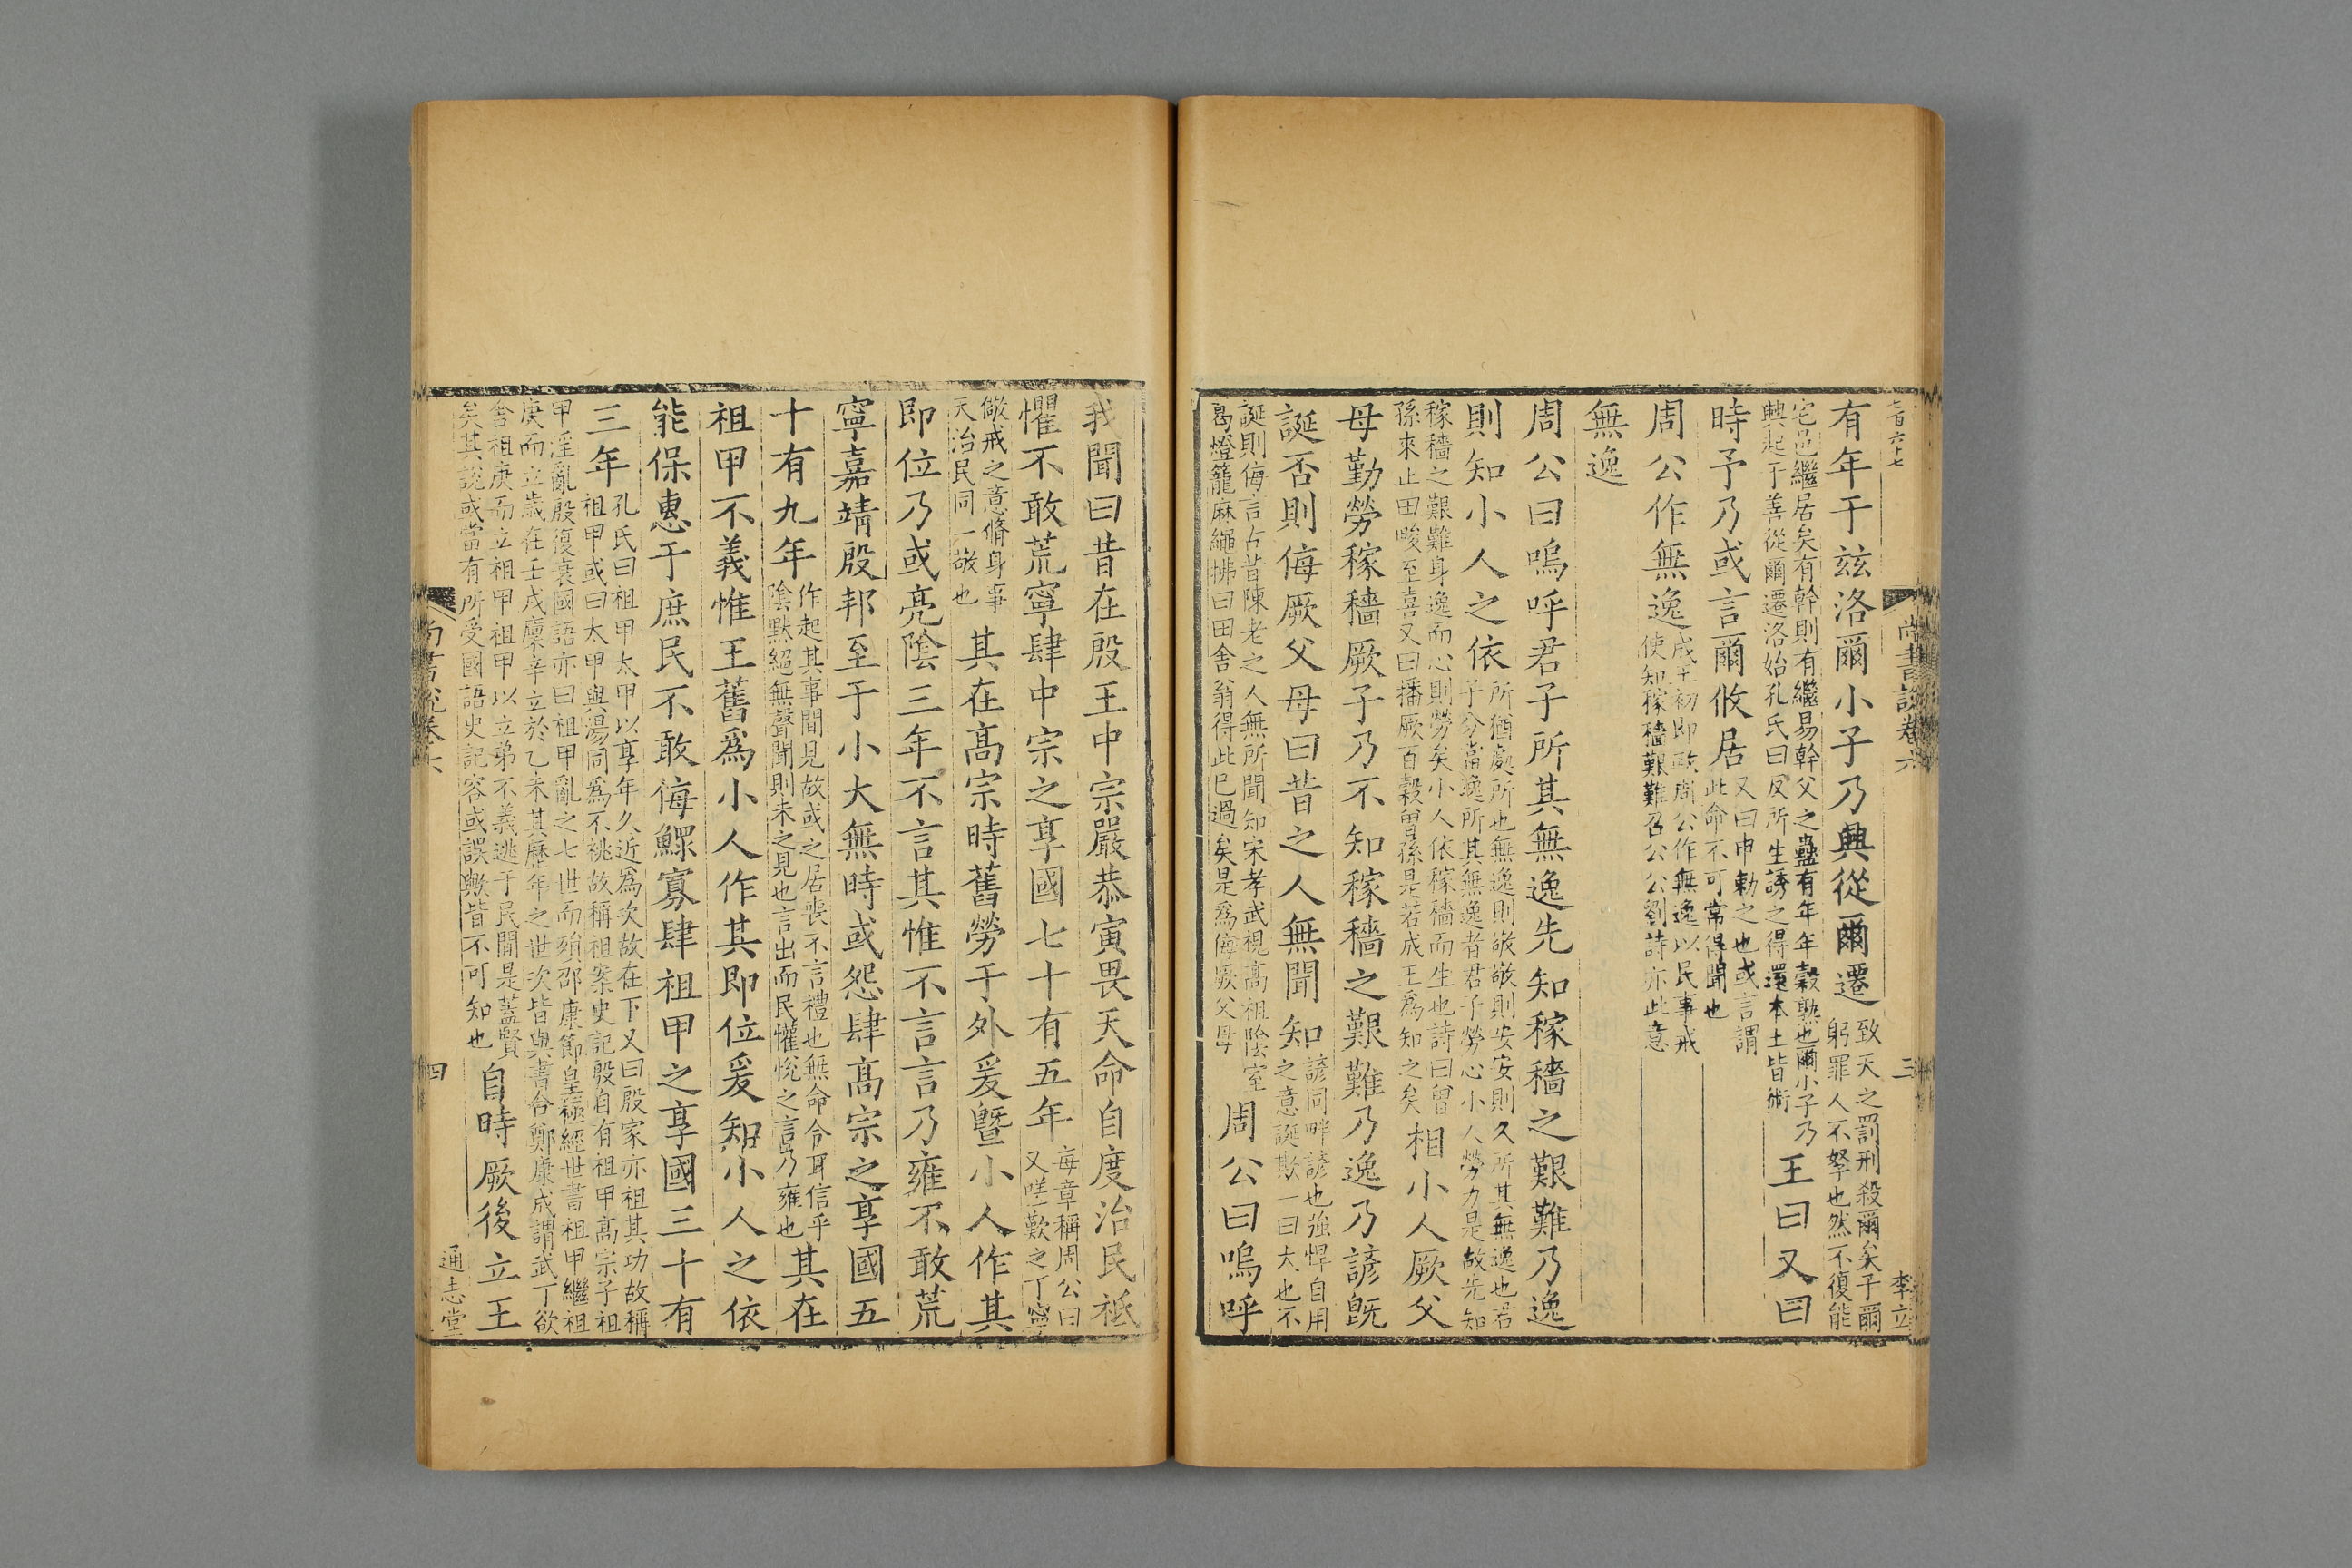 三百六十七
尚書說卷六
三
李立
有年于兹洛爾小子乃興從爾遷致天之罰刑殺爾矣子爾
躬罪人不孥也然不復能
宅邑繼居矣有幹則有繼易幹父之蠱有年年穀熟也爾小子乃
興起于善從爾遷洛始孔氏曰反所生誘之得還本土皆術王曰又曰
時予乃或言爾攸居又曰申勅之也或言謂
此命不可常得聞也
周公作無逸成王初即政周公作無逸以民事戒
使知稼穡艱難召公公劉詩亦此意
無逸
周公曰嗚呼君子所其無逸先知稼穡之艱難乃逸
則知小人之依所猶處所也無逸則敬敬則安安則久所其無逸也君
子分當逸所其無逸者君子勞心小人勞力是故先知
稼穡之艱難身逸而心則勞矣小人依稼穡而生也詩曰曾
孫來止田畯至喜又曰播厥百穀曾孫是若成王爲知之矣相小人厥父
母勤勞稼穡厥子乃不知稼穡之艱難乃逸乃諺旣
誕否則侮厥父母曰昔之人無聞知諺同畔諺也強悍自用
之意誕欺一曰大也不
誕則侮言古昔陳老之人無所聞知宋孝武視高祖陰室
葛燈籠麻繩拂曰田舍翁得此已過矣是爲侮厥父母周公曰嗚呼
我聞曰昔在殷王中宗嚴恭寅畏天命自度治民祗
懼不敢荒寧肆中宗之享國七十有五年每章稱周公曰
又嗟歎之丁寧
儆戒之意脩身事
天治民同一敬也其在高宗時舊勞于外爰曁小人作其
即位乃或亮陰三年不言其惟不言言乃雍不敢荒
寧嘉靖殷邦至于小大無時或怨肆高宗之享國五
十有九年作起其事間見故或之居喪不言禮也無命令耳信乎
陰默絕無聲聞則未之見也言出而民懽悅之言乃雍也其在
祖甲不義惟王舊爲小人作其即位爰知小人之依
能保惠于庶民不敢侮鰥寡肆祖甲之享國三十有
三年孔氏曰祖甲太甲以享年久近爲次故在下又曰殷家亦祖其功故稱
祖甲或曰太甲與湯同爲不祧故稱祖案史記殷自有祖甲高宗子祖
甲淫亂殷復衰國語亦曰祖甲亂之七世而殞邵康節皇極經世書祖甲繼祖
庚而立歲在壬戌廩辛立於乙未其歷年之世次皆與書合鄭康成謂武丁欲
舍祖庚而立祖甲祖甲以立弟不義逃于民間是蓋賢
矣其說或當有所受國語史記容或誤歟皆不可知也自時厥後立王
尚書說卷六
四
通志堂